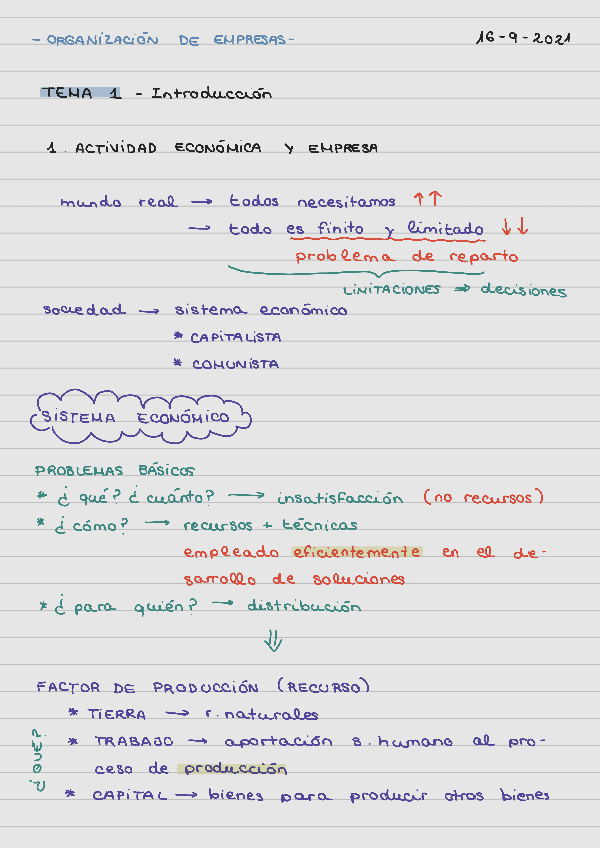 - ORGANIZACIÓN DE EMPRESAS -
16-9-2021
TEMA 1 - Introducción
1. ACTIVIDAD ECONÓMICA Y EMPRESA
mundo real → todos necesitamos ↑↑
→ todo es finito y limitado ↓↓
problema de reparto
LIMITACIONES ⇒ decisiones
sociedad → sistema económico
* CAPITALISTA
* COMUNISTA
SISTEMA ECONÓMICO
PROBLEMAS BÁSICOS
* ¿qué? ¿cuánto? → insatisfacción (no recursos)
* ¿cómo? → recursos + técnicas
empleado eficientemente en el de-
sarrollo de soluciones
* ¿para quién? → distribución
⇓
FACTOR DE PRODUCCIÓN (RECURSO)
* TIERRA → r. naturales
* TRABAJO → aportación s. humano al pro-
ceso de producción
* CAPITAL → bienes para producir otros bienes
¿QUÉ?